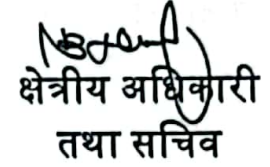 क्षेत्रीय अधिकारी
तथा सचिव